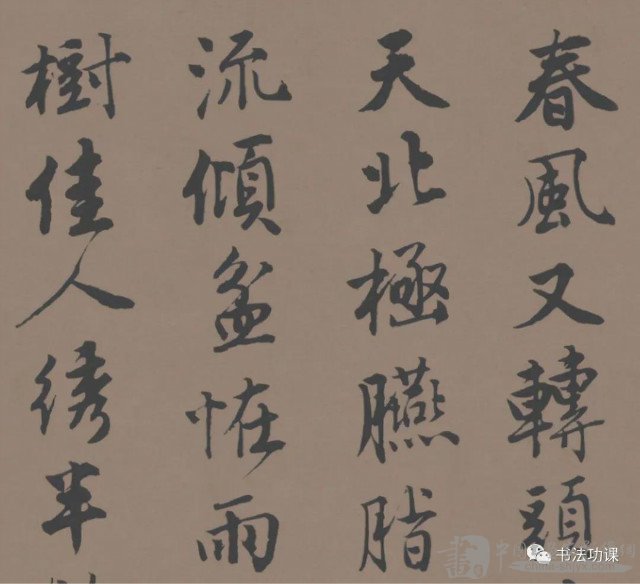 春風又轉頭
天北極臙脂
流傾盆恠雨
樹佳人绣半
书法功课